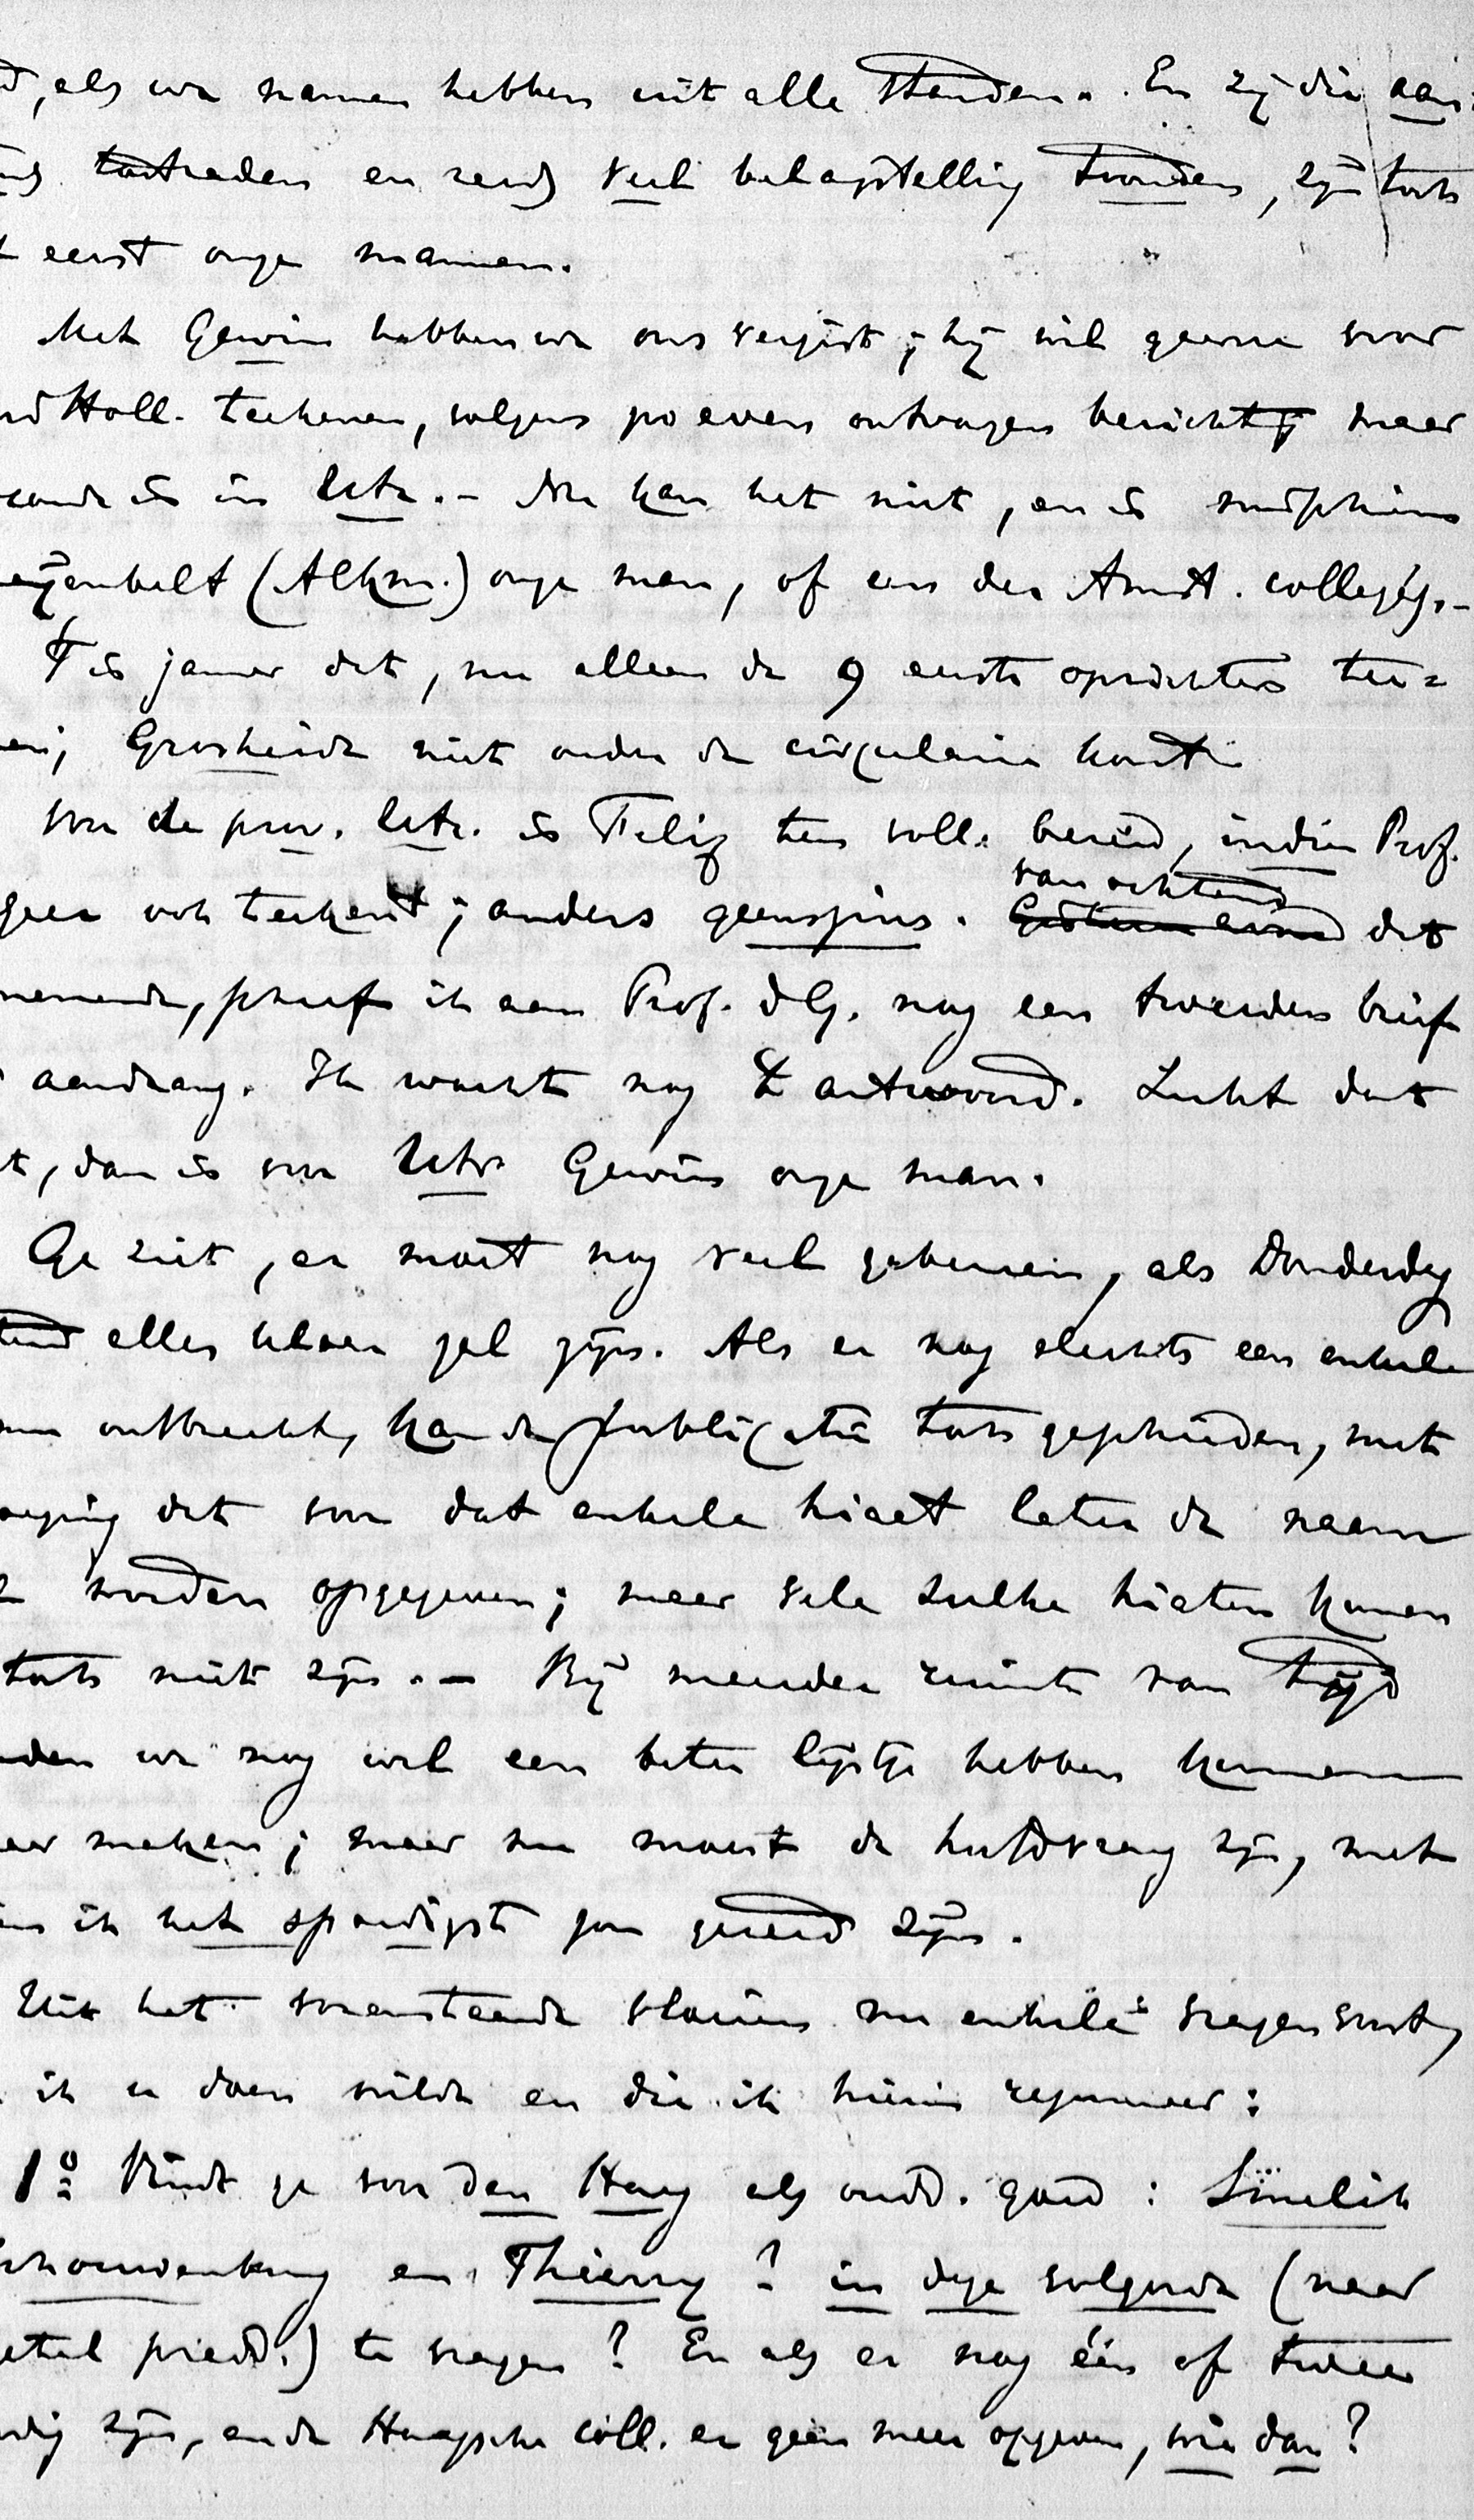 , als we namen hebben uit alle standen. En zij die aan=
toetraden en reeds veel belangstelling toonden, zijn toch
eerst onze mannen.
Met Gewin hebben we ons vergist; hij wil gaarne voor
Holl. teekenen, volgens zoo even ontvangen bericht; maar
is in Utr. – Nu kan het niet, en is misschien
(Alkm.) onze man, of een der Amst. collega's. –
't Is jammer dat, nu alleen de 9 eerste oprichters tee=
Grosheide niet onder de circulaire komt.
Voor de prov. Utr. is Felix ten volle bereid, indien Prof.
Geer ook teekent; anders geenszins. van ochtend dat
vernemende, schreef ik aan Prof. d G. nog een tweeden brief
aandrang. Ik wacht nog 't antwoord. Lukt dat
, dan is voor Utr. Gewin onze man.
Ge ziet, er moet nog veel gebeuren, als Donderdag
alles klaar zal zijn. Als er nog slechts een enkele
ontbreekt, kan de publicatie toch geschieden, met
bijvoeging dat voor dat enkele hiaat later de naam
worden opgegeven; maar vele zulke hiaten kunnen
toch niet zijn. – Bij meerder ruimte van tijd
we nog wel een beter lijstje hebben kunnen
maken; maar nu moest de hoofdvraag zijn, met
ik het spoedigst zou gereed zijn.
Uit het vorenstaande vloeien nu enkele vragen voort,
ik u doen wilde en die ik hierin resumeer:
1º Vindt ge voor den Haag als oudd. goed: Smelik
Schouwenburg en Thierry? in deze volgorde (naar
) te vragen? En als er nog één of twee
noodig zijn, en de Haagsche coll. er geen meer opgeven, wie dan?